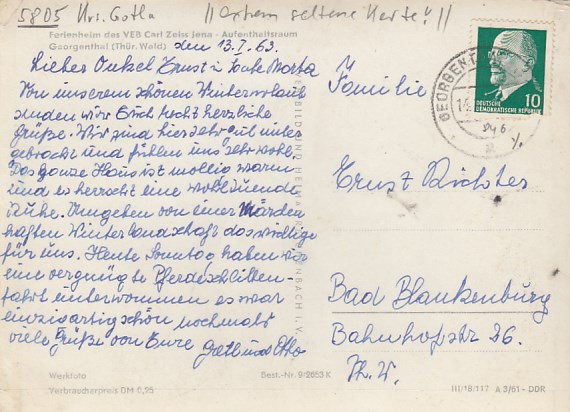 5805 Krs. Gotha //extrem seltene Karte!//
Ferienheim des VEB Carl Zeiss Jena - Aufenthaltsraum
Georgenthal (Thür. Wald)
den 13.1.63.
Lieber Onkel Ernst u. Tante Marta
Von unserem schönen Winterurlaub
senden wir Euch recht herzliche
Grüße. Wir sind hier sehr gut unter
gebracht und fühlen uns sehr wohl.
Das ganze Haus ist mollig warm
und es herrscht eine wohltuende
Ruhe. Umgeben von einer Märchen
haften Winterlandschaft das wichtige
für uns. Heute Sonntag haben wir
eine vergnügte Pferdeschlitten-
fahrt unternommen es war
einzigartig schön nochmals
viele Grüße von Eure
und Otto
Werkfoto
Best.-Nr. 9/2653 K
Verbraucherpreis DM 0,25
GEORGENT
DEUTSCHE
DEMOKRATISCHE REPUBLIK
10
Familie
Ernst Richter
Bad Blankenburg
Bahnhofstr 26.
Th. W.
III/18/117 A 3/61 - DDR